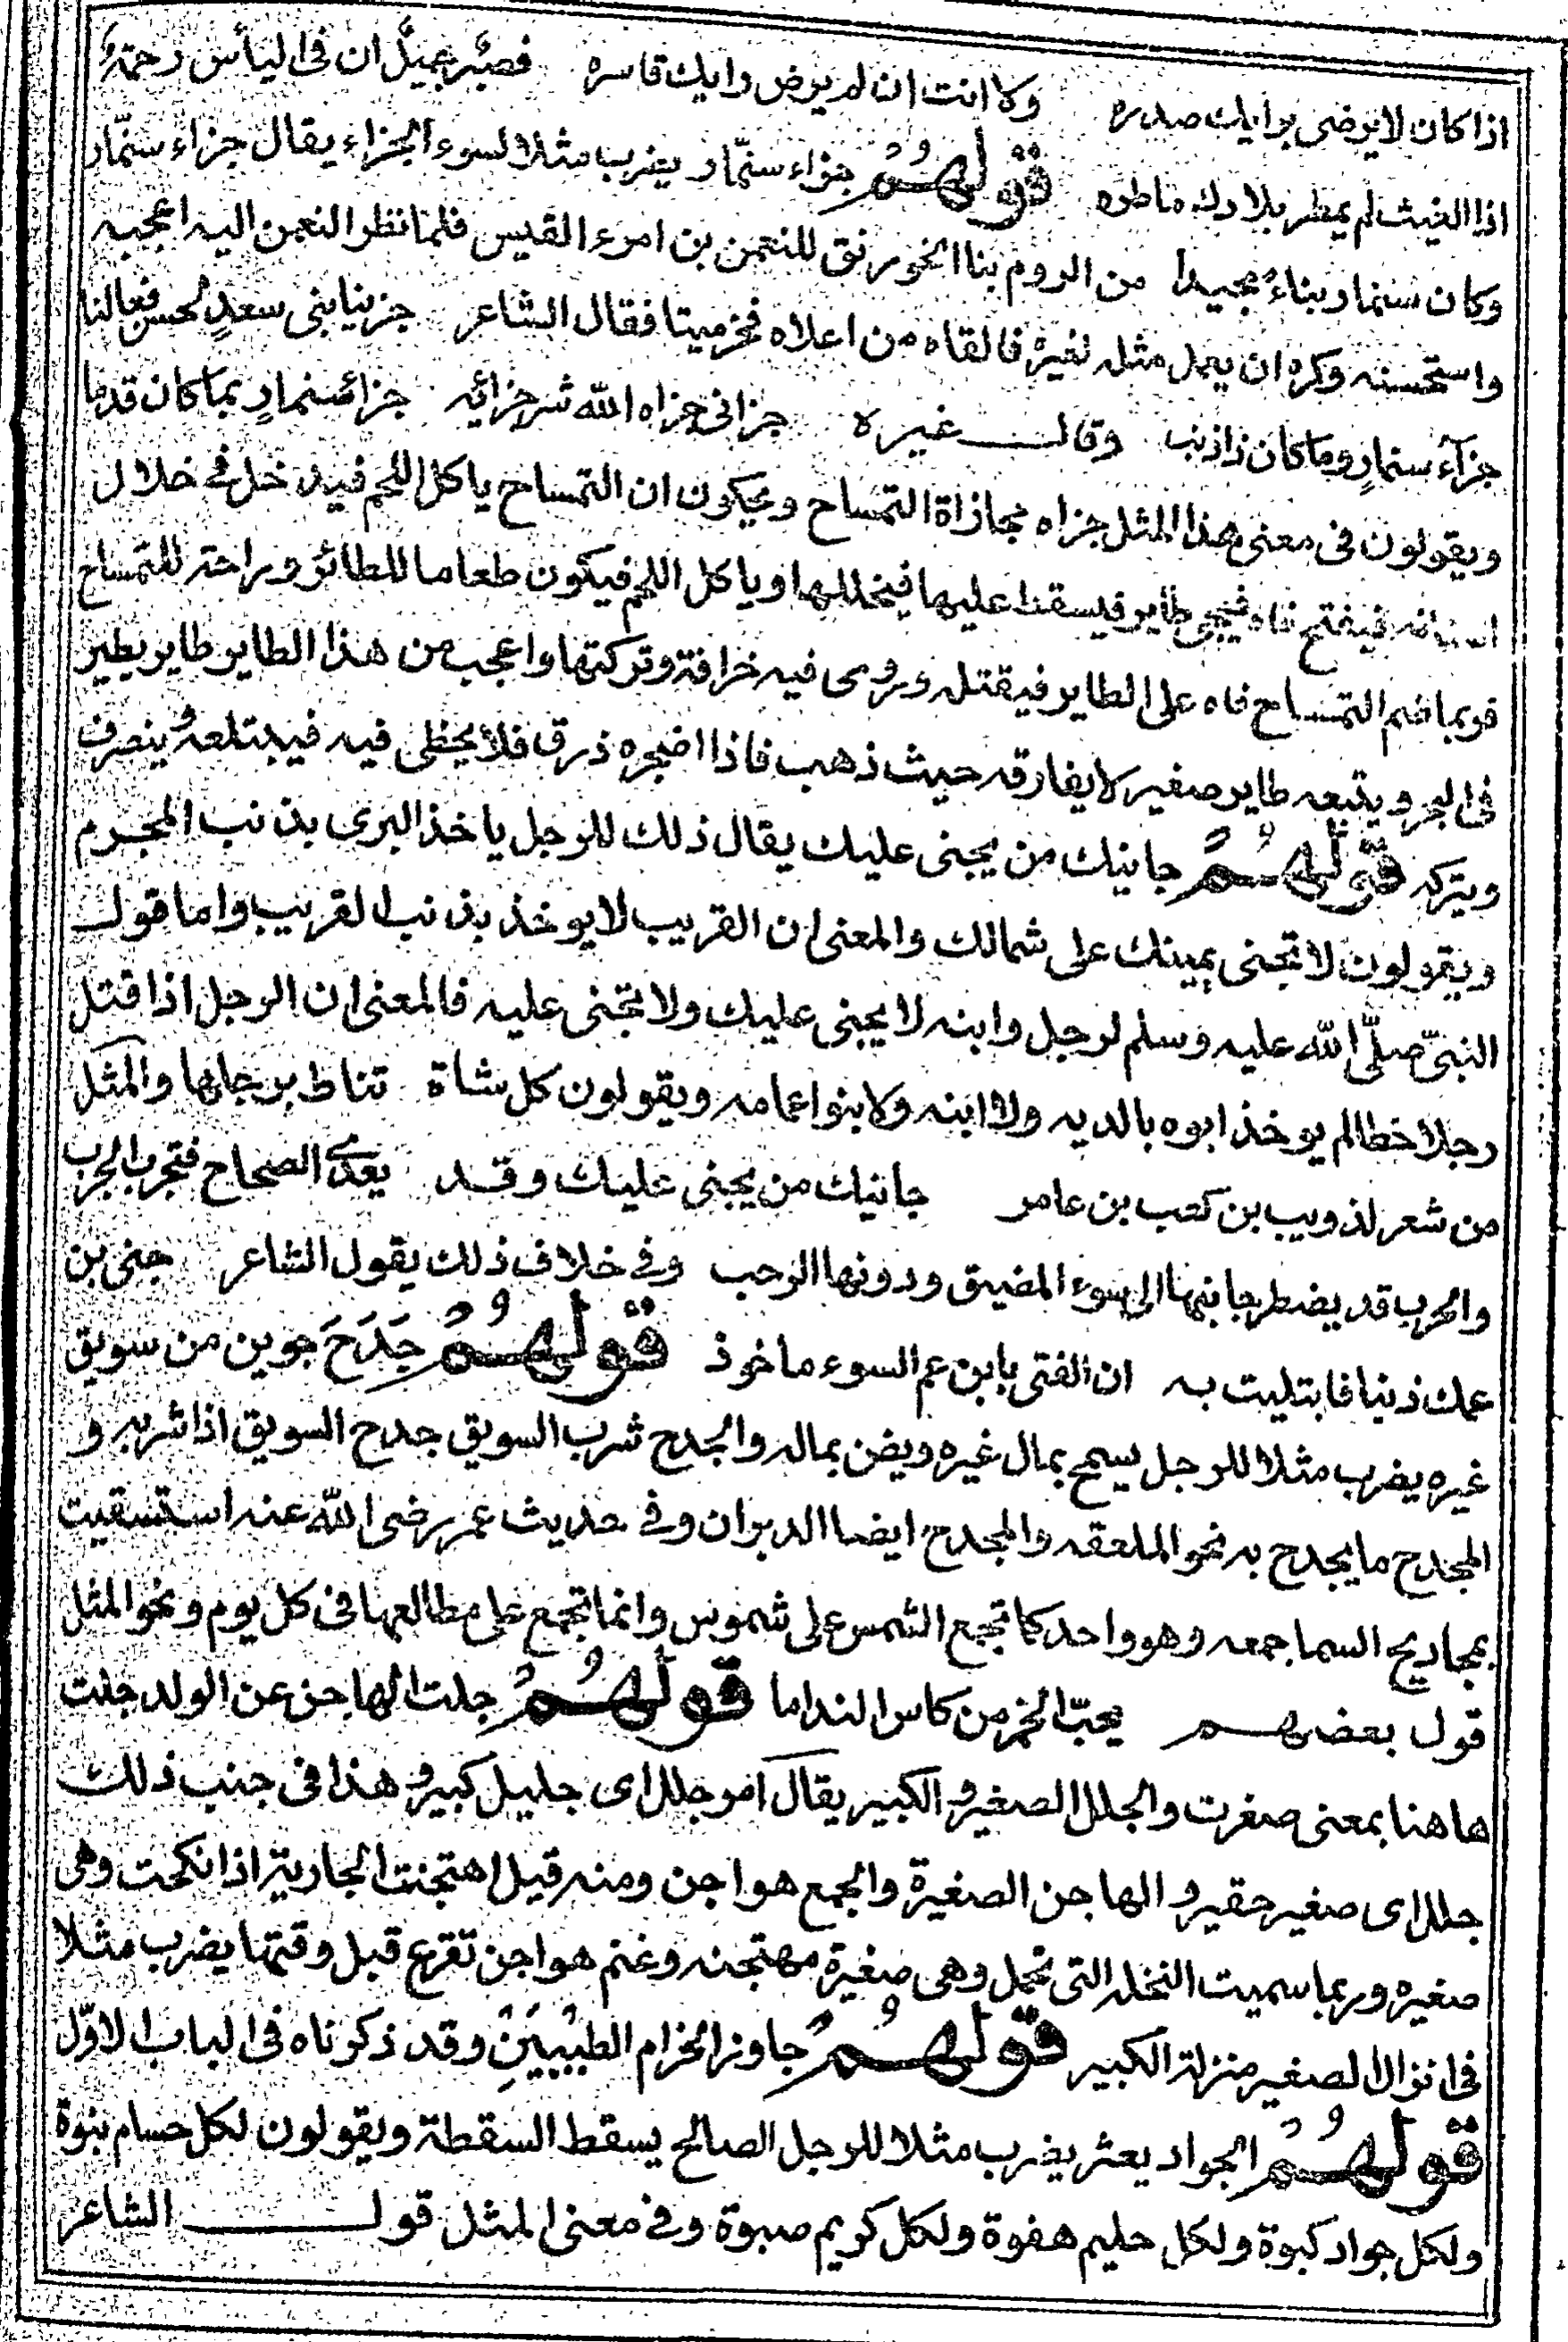 اذا كان لا يرضى برايك صدره ولا انت ان لم يرض رايك قاسره فصبر جميل ان فى الياس رحمة
اذا الغيث لم يمطر بلادك ماطره قولهم جزاء سنمار يضرب مثلا لسوء الجزاء يقال جزاء سنمار
وكان سنمار بناء مجيدا من الروم بنا الخورنق للنعمن بن امرء القيس فلما نظر النعمن اليه اعجبه
واستحسنه وكره ان يعمل مثله لغيره فالقاه من اعلاه فخر ميتا فقال الشاعر جزينا بنى سعدٍ لحسن فعالنا
جزآء سنمارٍ وما كان ذا ذنب وقال غيره جزانى جزاه الله شر جزائه جزاء سنمارٍ بما كان قدما
ويقولون فى معنى هذا المثل جزاه مجازاة التمساح ويحكون ان التمساح ياكل اللحم فيدخل فى خلال
اسنانه فيفتح فاه فيجى طاير فيسقط عليها فيخللها وياكل اللحم فيكون طعاما للطائر وراحة للتمساح
فربما ضم التمساح فاه على الطاير فيقتله وروى فيه خرافة وتركتها واعجب من هذا الطاير طاير يطير
فى البحر ويتبعه طاير صغير لا يفارقه حيث ذهب فاذا اضجره ذرق فلا يخطى فيه فيبتلعه وينصرف
ويتركه قولهم جانيك من يجنى عليك يقال ذلك للرجل ياخذ البرى بذنب المجرم
ويقولون لا تجنى يمينك على شمالك والمعنى ان القريب لا يوخذ بذنب القريب واما قول
النبىّ صلّى الله عليه وسلم لرجل وابنه لا يجنى عليك ولا تجنى عليه فالمعنى ان الرجل اذا قتل
رجلا خطا لم يوخذ ابوه بالديه ولا ابنه ولا بنو اعمامه ويقولون كل شاة تناط برجلها والمثل
من شعر لذويب بن كعب بن عامر جانيك من يجنى عليك وقد يعدى الصحاح فتجرب الجرب
والحرب قد يضطر جانبها الى سوء المضيق ودونها الرحب وفى خلاف ذلك يقول الشاعر جنى بن
عمك ذنبا فابتليت به ان الفتى بابن عم السوء ماخوذ قولهم جَدَحَ جوين من سويق
غيره يضرب مثلا للرجل يسمح بمال غيره ويضن بماله والجدح شرب السويق جدح السويق اذا شربه و
المجدح ما يجدح به نحو الملعقه والمجدح ايضا الدبران وفى حديث عمر رضى الله عنه استسقيت
بمجاديح السما جمعه وهو واحد كما تجمع الشمس على شموس وانما تجمع على مطالعها فى كل يوم ونحو المثل
قول بعضهم يحبّ الخمر من كاس النداما قولهم جلت الهاجن عن الولد جلت
هاهنا بمعنى صغرت والجلل الصغير و الكبير يقال امر جلل اى جليل كبير و هذا فى جنب ذلك
جلل اى صغير حقير و الهاجن الصغيرة والجمع هواجن ومنه قيل اهتجنت الجارية اذا نكحت وهى
صغيره وربما سميت النخله التى تحمل وهى صغيرة مهتجنه وغنم هواجن تقرع قبل وقتها يضرب مثلا
فى انزال الصغير منزلة الكبير قولهم جاوز الحزام الطبيين وقد ذكرناه فى الباب الاوّل
قولهم الجواد يعثر يضرب مثلا للرجل الصالح يسقط السقطة ويقولون لكل حسام نبوة
ولكل جواد كبوة ولكل حليم هفوة ولكل كريم صبوة وفى معنى المثل قول الشاعر